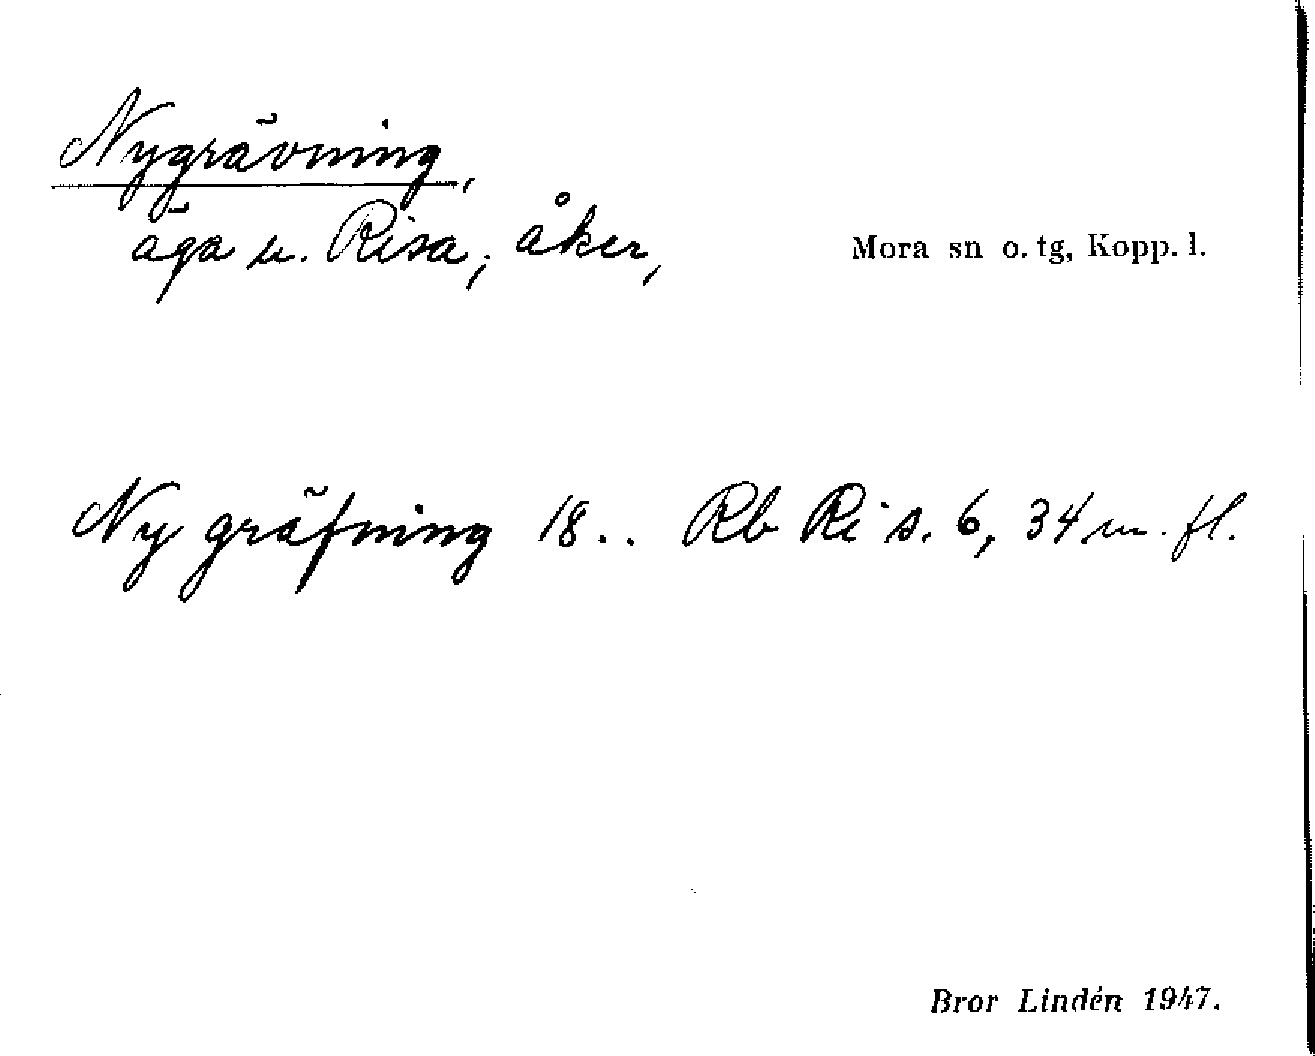 Nygrävning,
äga u. Risa; åker,
Mora sn o. tg, Kopp. l.
Ny gräfning 18.. Rb Ri s. 6, 34 m. fl.
Bror Lindén 1947.